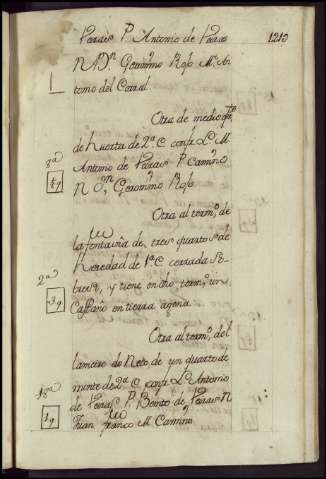 Parais P. Antonio de Parais 1219
N. Dn. Geronimo Rojo M. An
tonio del Corral.
Otra de medio qto
de huerta de 2a C confa L. M.
Antonio de Parais P. Camino
N Dn Geronimo Rojo
Otra al termo de
la fontaiña de tres quartos de
heredad de 1a C cerrada so-
bre si, y tiene en dho termo un
Castaño en tierra agena
Otra al termo del
Lameiro do Neto de un quarto de
monte de 2a C confa L. Antonio
de Parais P. Benito de Parais N
Juan franco M Camino
3a
2a
18a